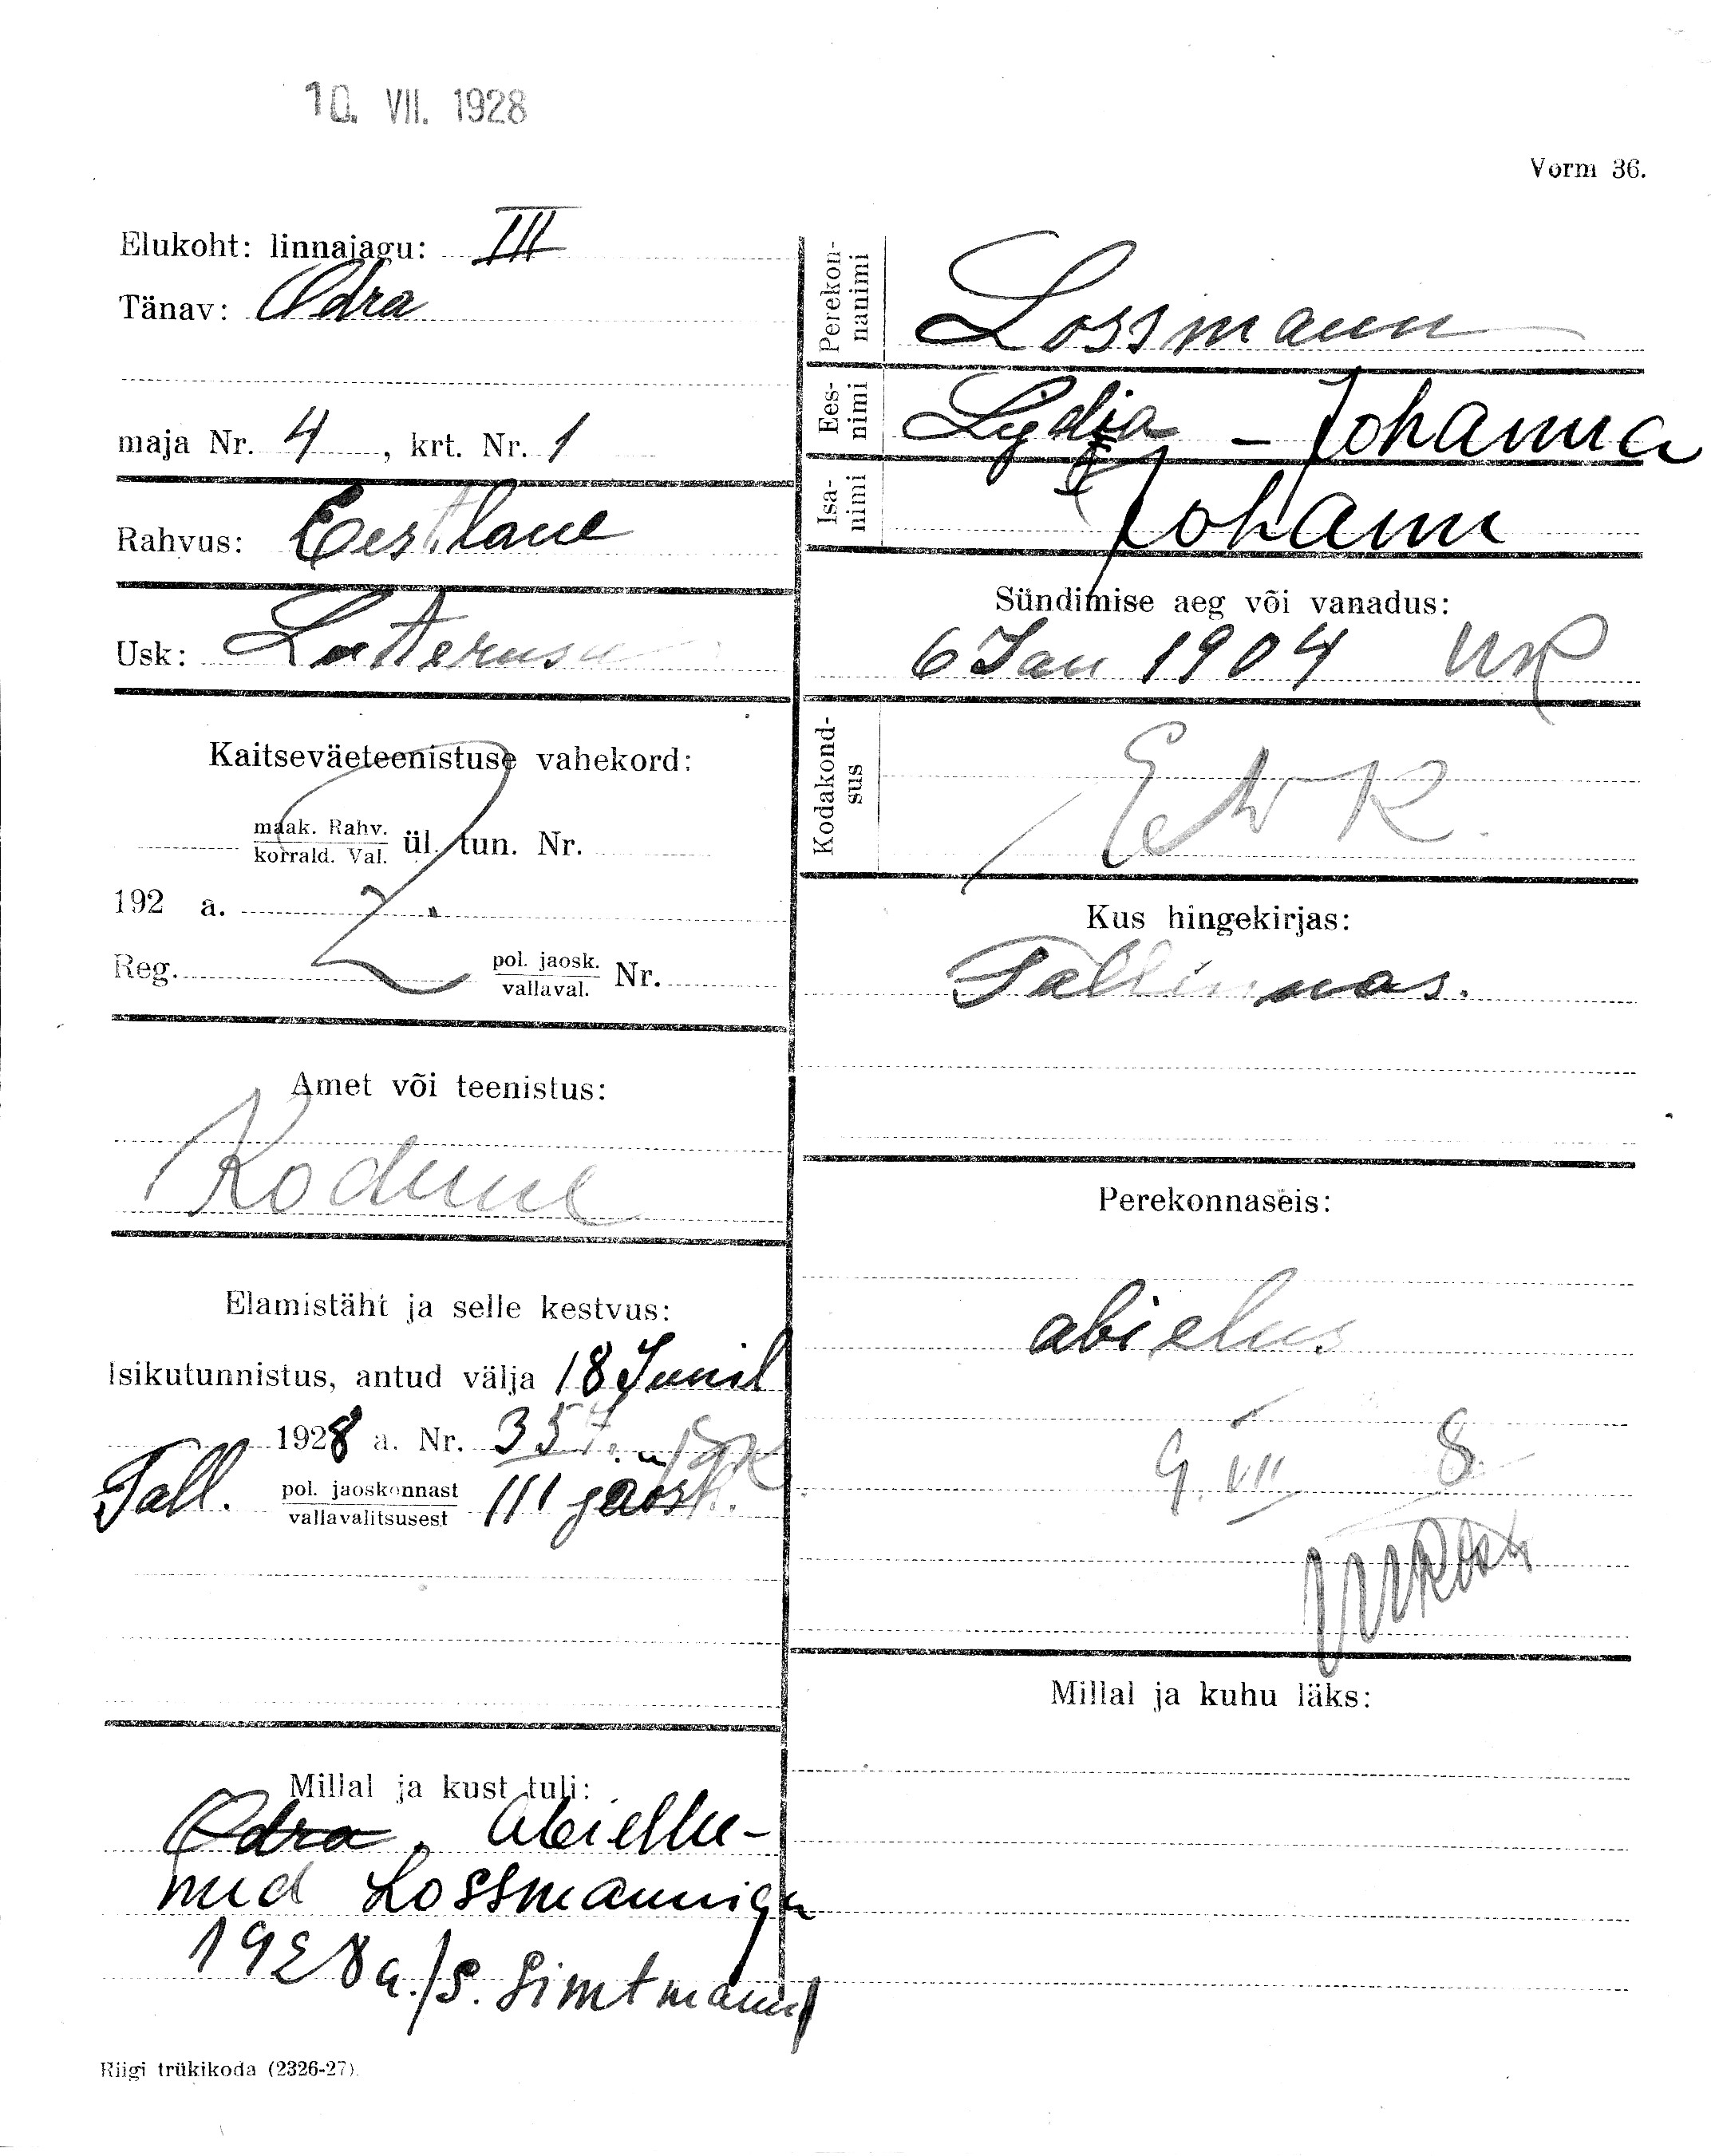 10. VII. 1928
Vorm 36.
Elukoht: linnajagu: III
Tänav: Odra
maja Nr. 4, krt. Nr. 1
Rahvus: Eestlane
Usk: Lutterusu
Kaitseväeteenistuse vahekord:
maak. Rahv.
korrald. Val. ül. tun. Nr.
192 a.
Reg. pol. jaosk.
vallaval. Nr.
Amet või teenistus:
Kodune
Elamistäht ja selle kestvus:
Isikutunnistus, antud välja 18 Junil
1928 a. Nr. 357.
Tall. pol. jaoskonnast
vallavalitsusest III jaosk.
Millal ja kust tuli:
Odra. Abiellu-
nud Lossmanniga
1928 a. /s. Simtmann/
Riigi trükikoda (2326-27).
Perekon-
nanimi Lossmann
Ees-
nimi Lydia - Johanna
Isa-
nimi Johann
Sündimise aeg või vanadus:
6 Jan 1904
Kodakond-
sus EWK.
Kus hingekirjas:
Tallinnas.
Perekonnaseis:
abielus
9. VII 8.
Millal ja kuhu läks: